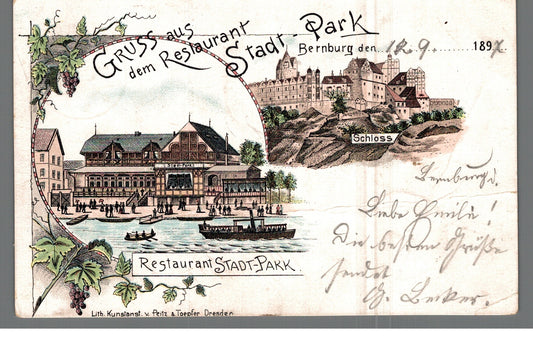 Gruss aus
dem Restaurant
Stadt-Park
Bernburg den 12. 9. 1897
Schloss
STADT-PARK
Restaurant STADT-PARK.
Bernburg d.
Liebe Emilie!
Die besten Grüße
sendet
G. Becker.
Lith. Kunstanst. v. Peitz & Toepfer Dresden